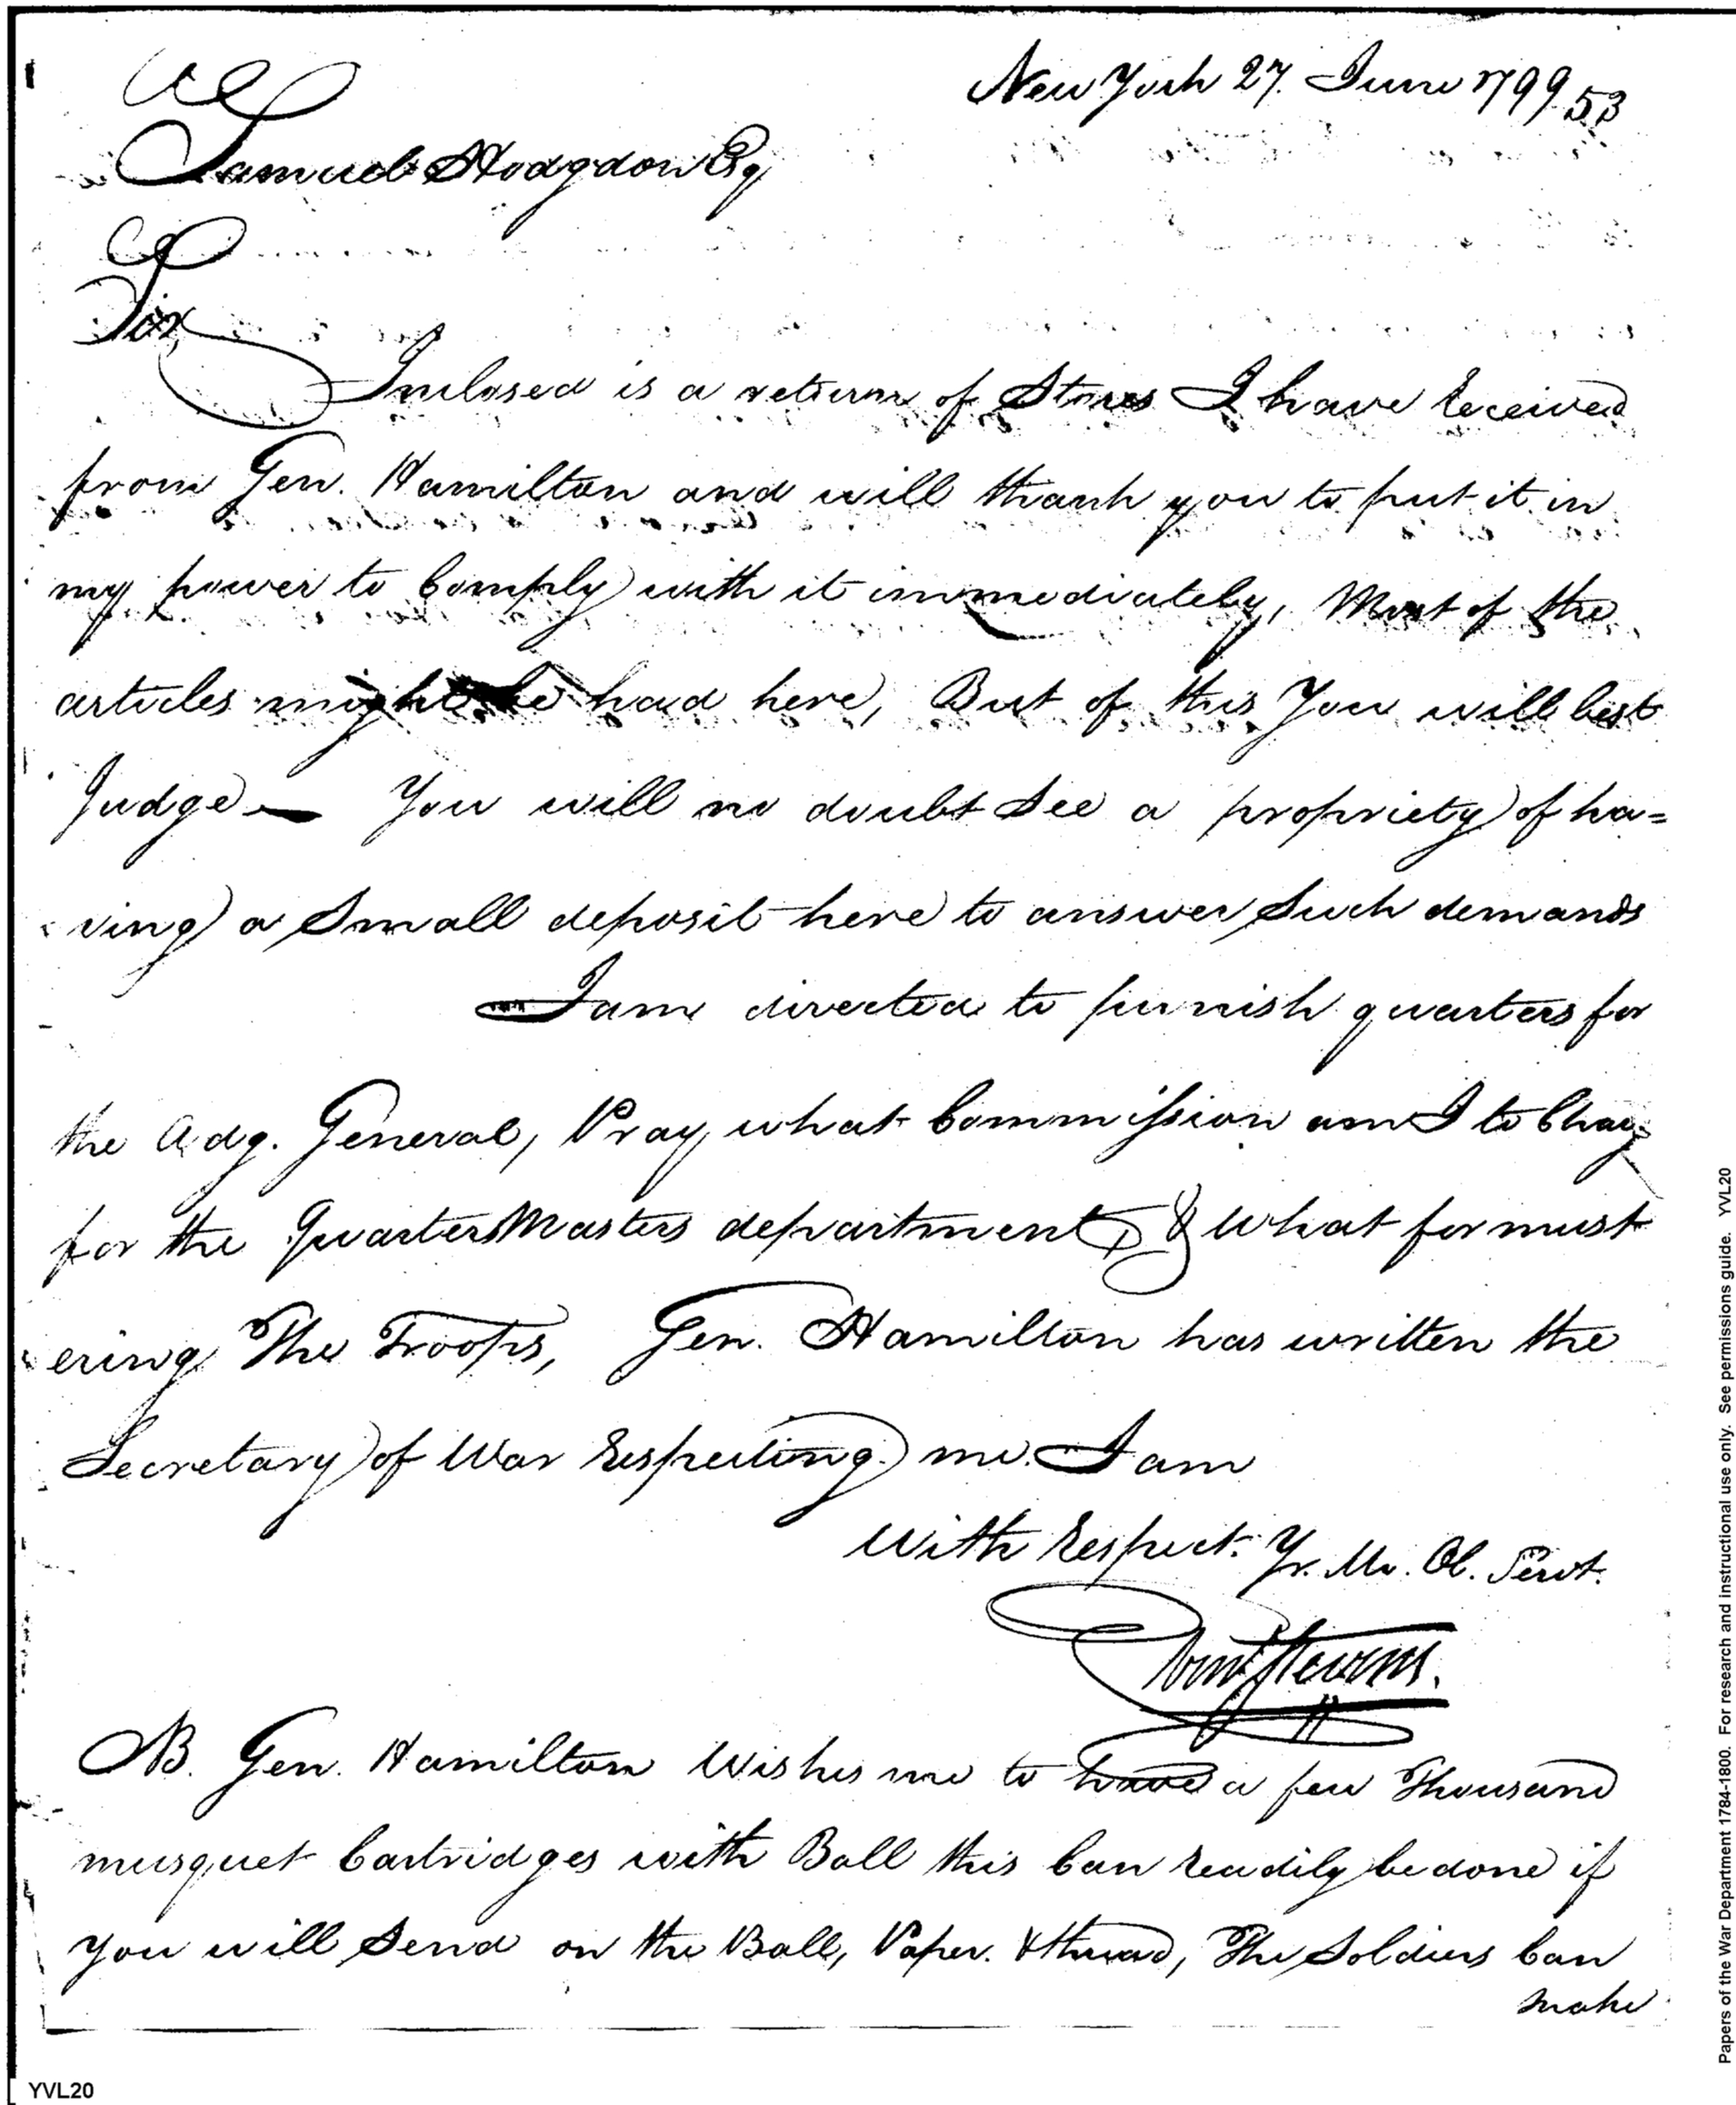 New York 27. June 1799 53
Samuel Hodgdon Esq
Sir,
Inclosed is a return of Stores I have received
from Gen. Hamilton and will thank you to put it in
my power to Comply with it immediately, Most of the
articles might be had here, But of this You will best
Judge — You will no doubt See a propriety of ha=
ving a Small deposit here to answer Such demands
I am directed to furnish quarters for
the Adg. General, Pray what Commission am I to Charg
for the QuartersMasters department, & What for must
ering The Troops, Gen. Hamilton has written the
Secretary of War respecting me. I am
With respect. Yr. Mo. Ob. Servt.
Stevens.
NB. Gen. Hamilton Wishes me to have a few Thousand
musquet Cartridges with Ball this Can readily be done if
you will Send on the Ball, Paper. & thread, The Soldiers Can
make
YVL20
Papers of the War Department 1784-1800. For research and instructional use only. See permissions guide. YVL20